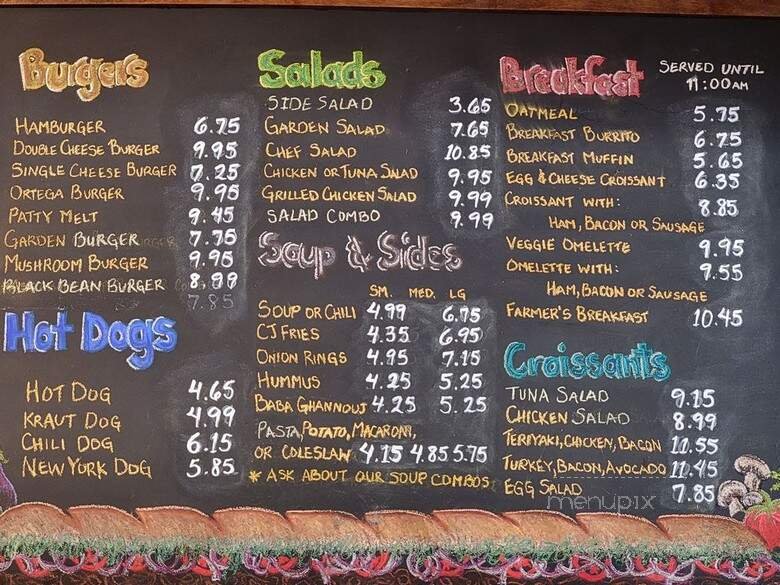 Burgers
HAMBURGER 6.75
DOUBLE CHEESE BURGER 9.95
SINGLE CHEESE BURGER 7.25
ORTEGA BURGER 9.95
PATTY MELT 9.45
GARDEN BURGER 7.75
MUSHROOM BURGER 9.95
BLACK BEAN BURGER 8.99
7.85
Hot Dogs
HOT DOG 4.65
KRAUT DOG 4.99
CHILI DOG 6.15
NEW YORK DOG 5.85
Salads
SIDE SALAD 3.65
GARDEN SALAD 7.65
CHEF SALAD 10.85
CHICKEN OR TUNA SALAD 9.95
GRILLED CHICKEN SALAD 9.99
SALAD COMBO 9.99
Soup & Sides
SM. MED. LG
SOUP OR CHILI 4.99 6.75
CJ FRIES 4.35 6.95
ONION RINGS 4.95 7.15
HUMMUS 4.25 5.25
BABA GHANNOUJ 4.25 5.25
PASTA, POTATO, MACARONI,
OR COLESLAW 4.15 4.85 5.75
* ASK ABOUT OUR SOUP COMBOS
Breakfast SERVED UNTIL
11:00AM
OATMEAL 5.75
BREAKFAST BURRITO 6.75
BREAKFAST MUFFIN 5.65
EGG & CHEESE CROISSANT 6.35
CROISSANT WITH: 8.85
HAM, BACON OR SAUSAGE
VEGGIE OMELETTE 9.95
OMELETTE WITH: 9.55
HAM, BACON OR SAUSAGE
FARMER'S BREAKFAST 10.45
Croissants
TUNA SALAD 9.15
CHICKEN SALAD 8.99
TERIYAKI, CHICKEN, BACON 11.55
TURKEY, BACON, AVOCADO 11.45
EGG SALAD 7.85
menupix